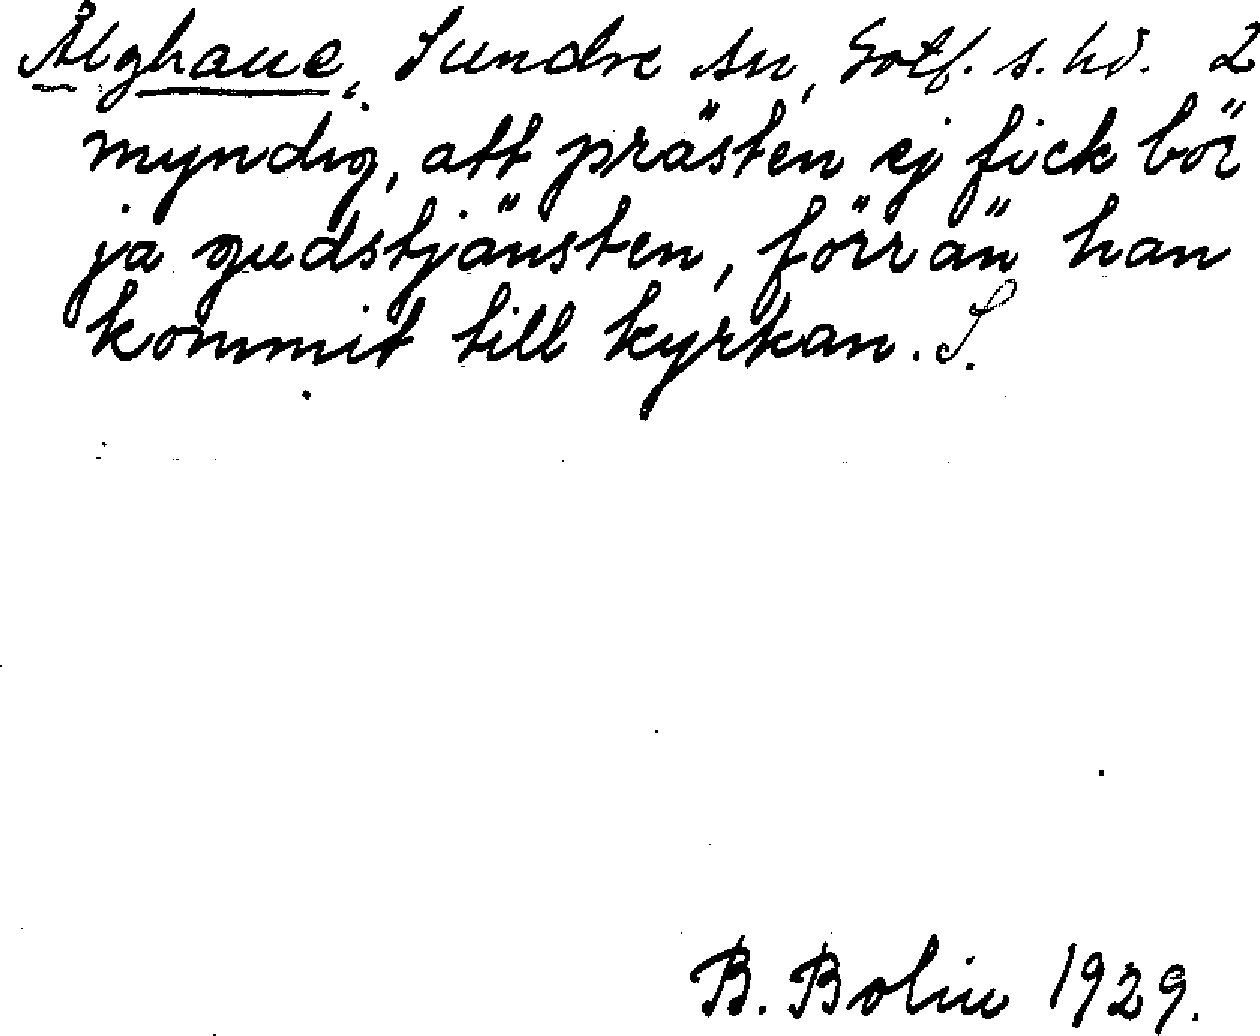 Ålghaue, Sundre sn, Gotl. s. hd. 2
myndig, att prästen ej fick bör
ja gudstjänsten, förrän han
kommit till kyrkan. S.
B. Bolin 1929.